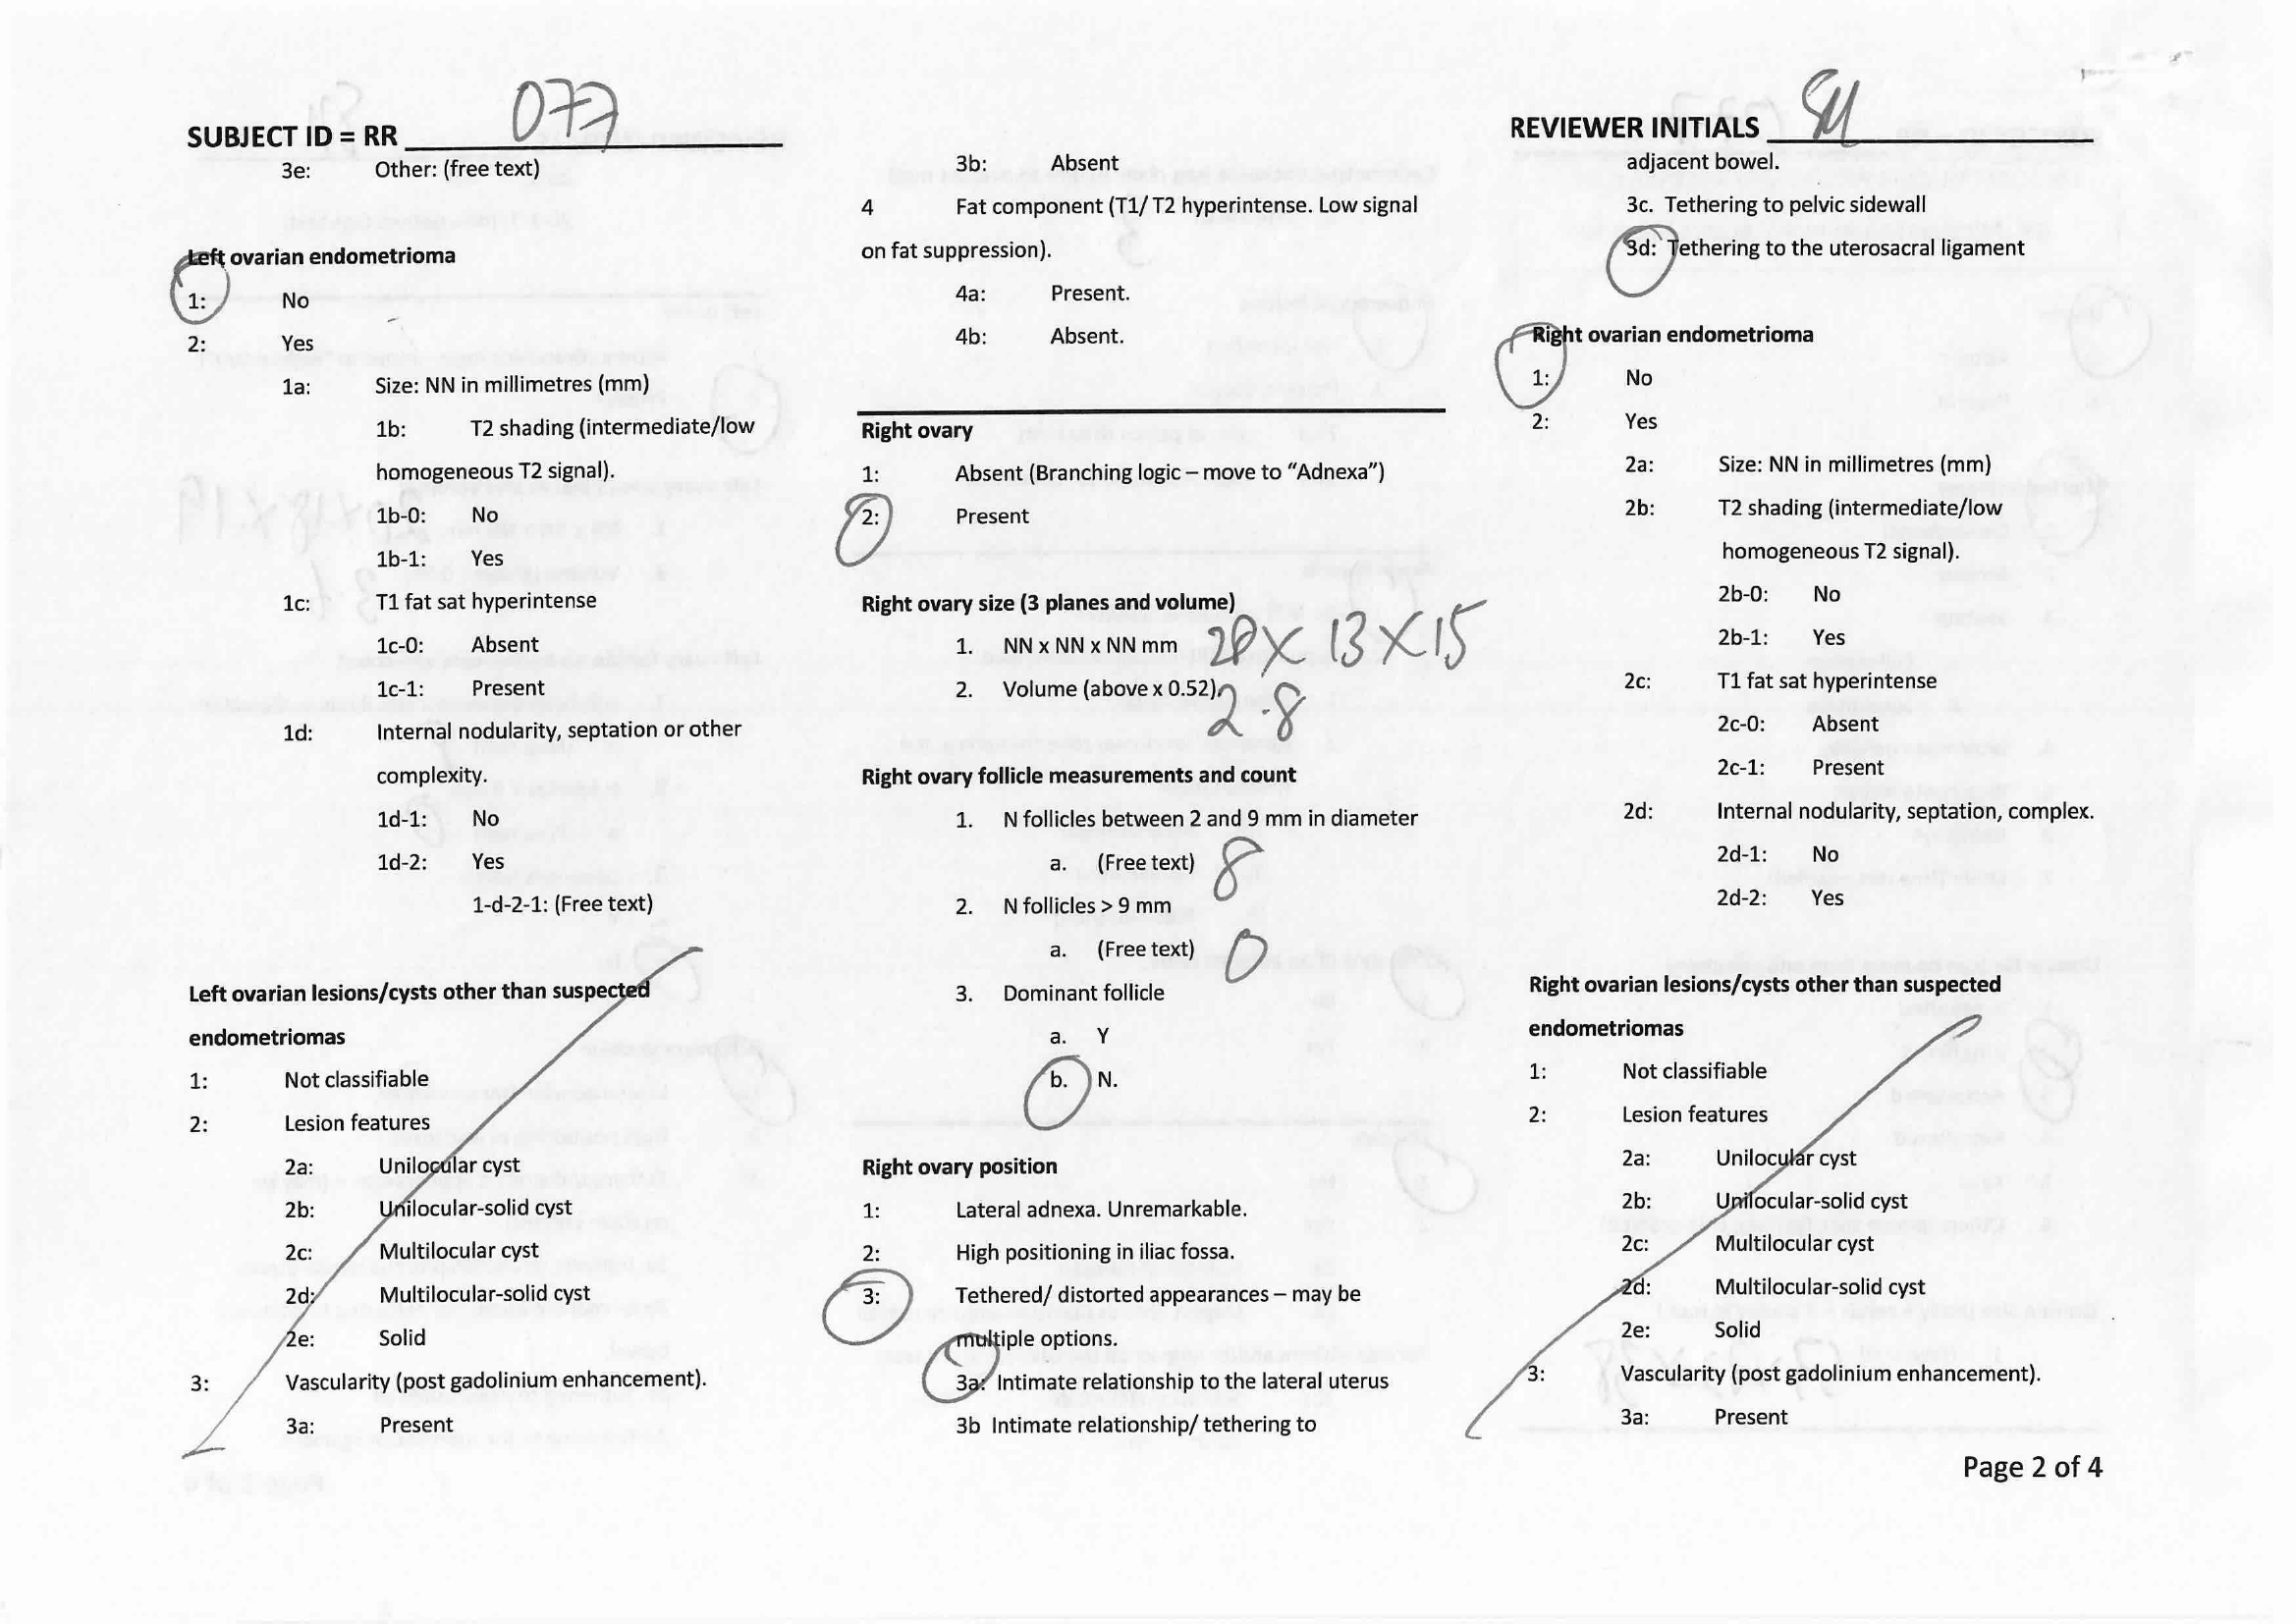 SUBJECT ID = RR 077
3e: Other: (free text)
Left ovarian endometrioma
1: No
2: Yes
1a: Size: NN in millimetres (mm)
1b: T2 shading (intermediate/low
homogeneous T2 signal).
1b-0: No
1b-1: Yes
1c: T1 fat sat hyperintense
1c-0: Absent
1c-1: Present
1d: Internal nodularity, septation or other
complexity.
1d-1: No
1d-2: Yes
1-d-2-1: (Free text)
Left ovarian lesions/cysts other than suspected
endometriomas
1: Not classifiable
2: Lesion features
2a: Unilocular cyst
2b: Unilocular-solid cyst
2c: Multilocular cyst
2d: Multilocular-solid cyst
2e: Solid
3: Vascularity (post gadolinium enhancement).
3a: Present
3b: Absent
4 Fat component (T1/ T2 hyperintense. Low signal
on fat suppression).
4a: Present.
4b: Absent.
Right ovary
1: Absent (Branching logic – move to “Adnexa”)
2: Present
Right ovary size (3 planes and volume)
1. NN x NN x NN mm X 13 X 15
2. Volume (above x 0.52). 2.8
Right ovary follicle measurements and count
1. N follicles between 2 and 9 mm in diameter
a. (Free text) 8
2. N follicles > 9 mm
a. (Free text) 0
3. Dominant follicle
a. Y
b. N.
Right ovary position
1: Lateral adnexa. Unremarkable.
2: High positioning in iliac fossa.
3: Tethered/ distorted appearances – may be
multiple options.
3a: Intimate relationship to the lateral uterus
3b Intimate relationship/ tethering to
REVIEWER INITIALS
adjacent bowel.
3c. Tethering to pelvic sidewall
3d: Tethering to the uterosacral ligament
Right ovarian endometrioma
1: No
2: Yes
2a: Size: NN in millimetres (mm)
2b: T2 shading (intermediate/low
homogeneous T2 signal).
2b-0: No
2b-1: Yes
2c: T1 fat sat hyperintense
2c-0: Absent
2c-1: Present
2d: Internal nodularity, septation, complex.
2d-1: No
2d-2: Yes
Right ovarian lesions/cysts other than suspected
endometriomas
1: Not classifiable
2: Lesion features
2a: Unilocular cyst
2b: Unilocular-solid cyst
2c: Multilocular cyst
2d: Multilocular-solid cyst
2e: Solid
3: Vascularity (post gadolinium enhancement).
3a: Present
Page 2 of 4